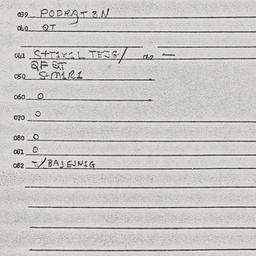 039 PODRAT 3N
040 QT
041 S+T1K1L TEJG/ 042 —
QF QT
050 S-M1R1
060 0
070 0
080 0
081 0
082 -/.BAJEJN1G